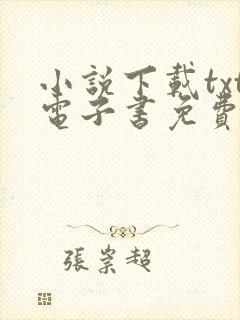 小說下載txt
電子書免費
張崇超